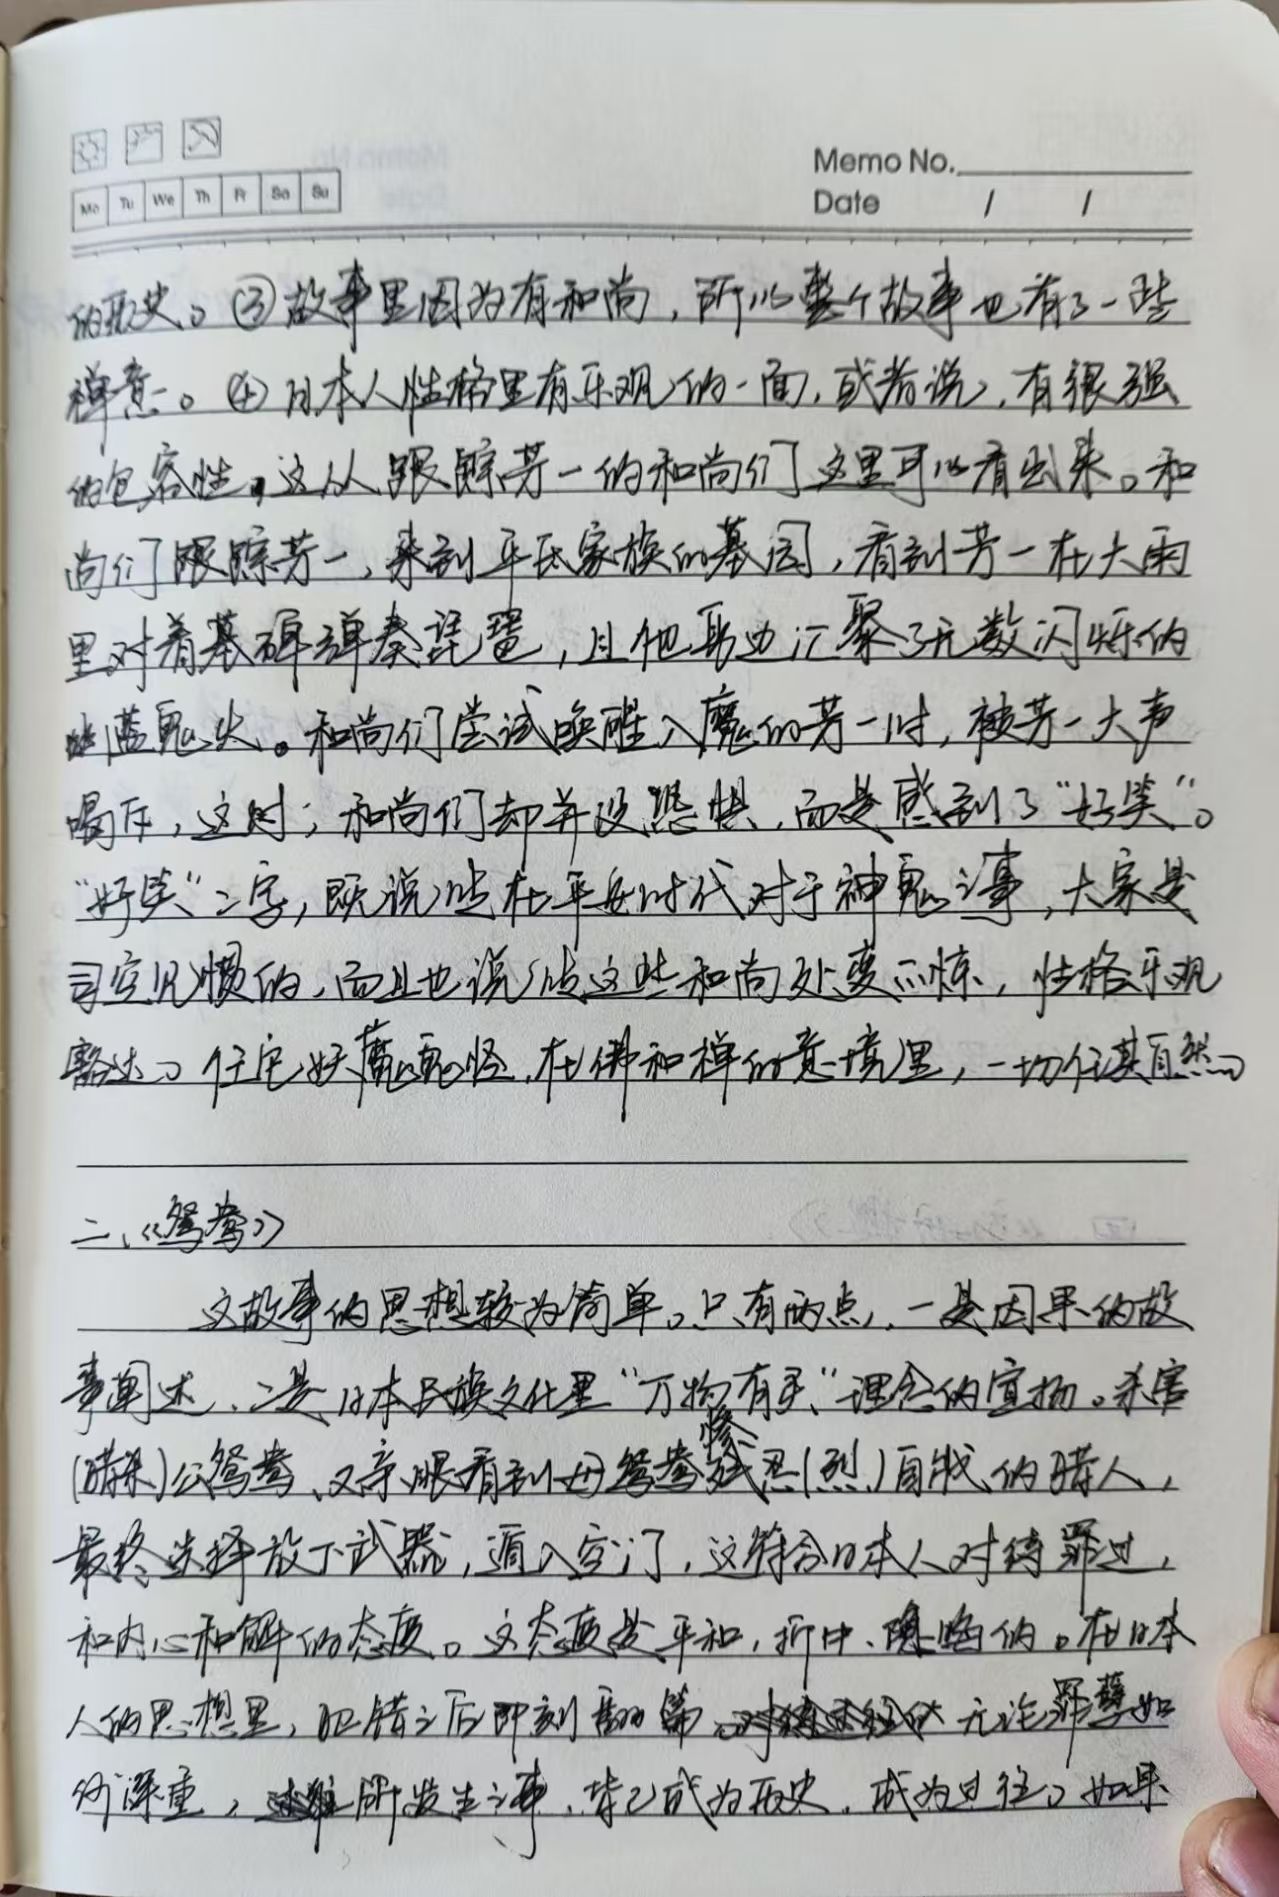 Memo No.
Mo Tu We Th Fr Sa Su
Date / /
的历史。③故事里因为有和尚，所以整个故事也有了一些
禅意。④日本人性格里有乐观的一面，或者说，有很强
的包容性。这从跟踪芳一的和尚们这里可以看出来。和
尚们跟踪芳一，来到平氏家族的墓园，看到芳一在大雨
里对着墓碑弹奏琵琶，且他身边汇聚了无数闪烁的
蓝鬼火。和尚们尝试唤醒入魔的芳一时，被芳一大声
喝斥，这时，和尚们却并没恐惧，而是感到了“好笑”。
“好笑”二字，既说明在平安时代对于神鬼之事，大家是
司空见惯的，而且也说明这些和尚处变不惊，性格乐观
豁达。任它妖魔鬼怪，在佛和禅的意境里，一切任其自然。
二、《鸳鸯》
这故事的思想较为简单。只有两点，一是因果的故
事阐述，二是日本民族文化里“万物有灵”理念的宣扬。杀害
(猎杀)公鸳鸯、又亲眼看到母鸳鸯惨烈(烈)自戕的猎人，
最终选择放下武器，遁入空门，这符合日本人对待罪过，
和内心和解的态度。这态度是平和，折中、隐晦的。在日本
人的思想里，犯错之后即刻翻篇，无论罪孽如
何深重，所发生之事，皆已成为历史，成为过往。如果